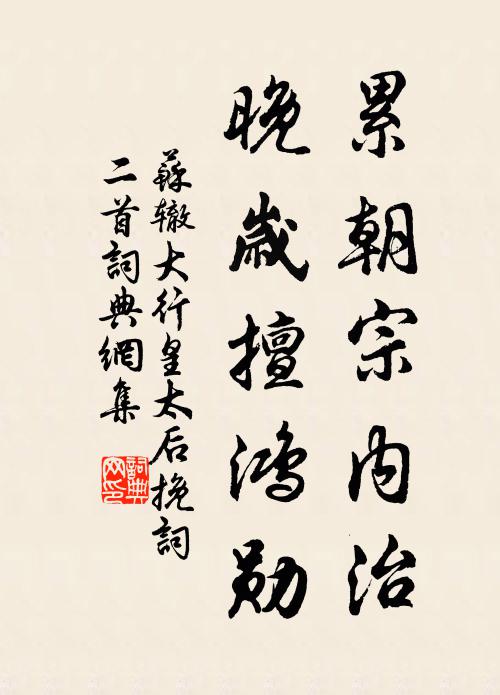 累朝宗內治
晚歲擅鴻勛
蘇轍大行皇太后挽詞
二首詞典網集
詞典
网印